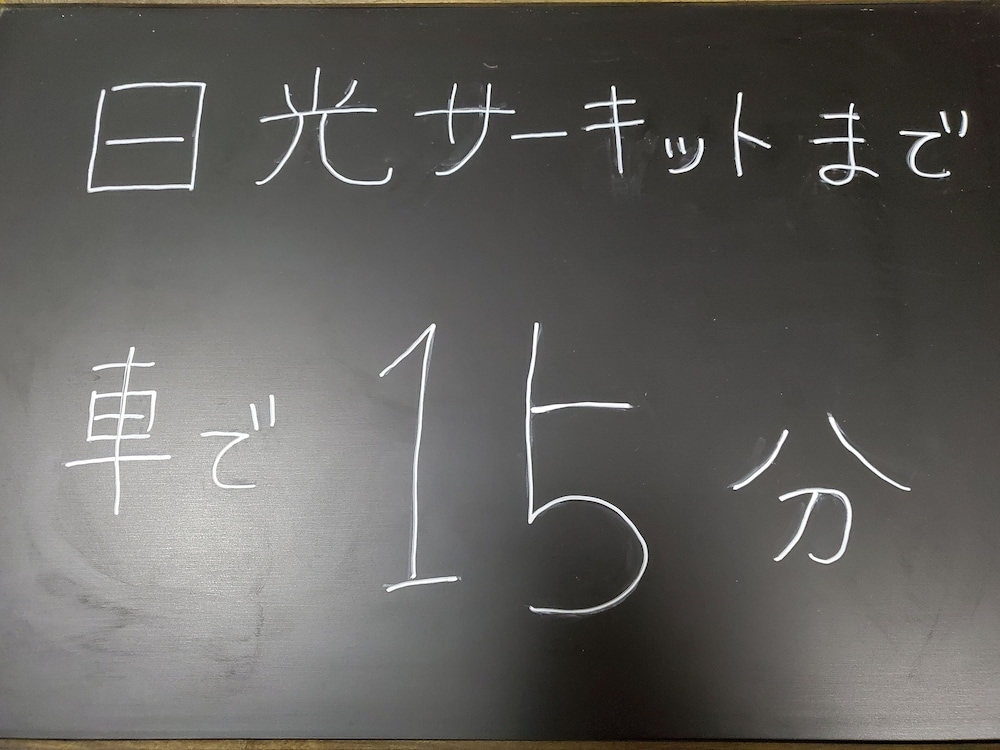 日光サーキットまで
車で15分